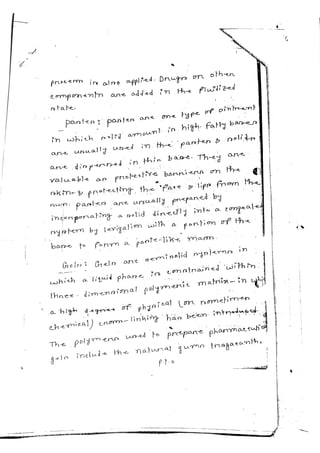 process is also applied. Drugs or other
components are added in the fluidized
state.
pastes: pastes are one type of ointment
in which solid amount in high. Fatty bases
are usually used in the pastes & solids
are dispersed in this base. They are
valuable as protective barriers on the
skin & protecting the face & lips from the
sun. pastes are usually prepared by
incorporating a solid directly into a congealed
system by levigation with a portion of the
base to form a paste-like mass.
Gels: Gels are semisolid systems in
which a liquid phase is constrained within
three-dimensional polymeric matrix in
a high degree of physical (or sometimes
chemical) cross-linking has been introduced.
The polymers used to prepare pharmaceutical
gels include the natural gums tragacanth,